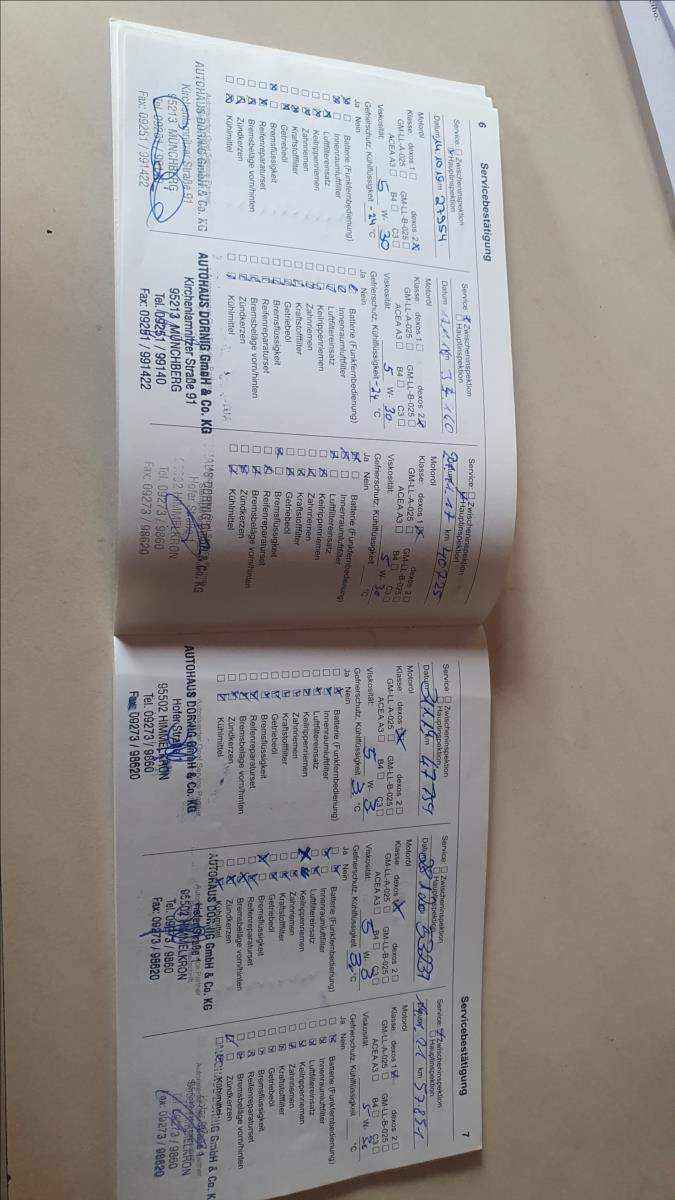 6 Servicebestätigung
Service: Zwischeninspektion
Hauptinspektion
Datum 14.10.15 km 27954
Motoröl
Klasse: dexos 1 dexos 2
GM-LL-A-025 GM-LL-B-025
ACEA A3 B4 C3
Viskosität: 5 W- 30
Gefrierschutz, Kühlflüssigkeit -24 °C
Ja Nein
Batterie (Funkfernbedienung)
Innenraumluftfilter
Luftfiltereinsatz
Keilrippenriemen
Zahnriemen
Kraftstofffilter
Getriebeöl
Bremsflüssigkeit
Reifenreparaturset
Bremsbeläge vorn/hinten
Zündkerzen
Kühlmittel
AUTOHAUS DORNIG GmbH & Co. KG
Kirchenlamnitzer Straße 91
95213 MÜNCHBERG
Tel. 09251 / 99140
Fax: 09251 / 991422
Service: Zwischeninspektion
Hauptinspektion
Datum km 34160
Motoröl
Klasse: dexos 1 dexos 2
GM-LL-A-025 GM-LL-B-025
ACEA A3 B4 C3
Viskosität: 5 W- 30
Gefrierschutz, Kühlflüssigkeit -24 °C
Ja Nein
Batterie (Funkfernbedienung)
Innenraumluftfilter
Luftfiltereinsatz
Keilrippenriemen
Zahnriemen
Kraftstofffilter
Getriebeöl
Bremsflüssigkeit
Reifenreparaturset
Bremsbeläge vorn/hinten
Zündkerzen
Kühlmittel
AUTOHAUS DORNIG GmbH & Co. KG
Kirchenlamnitzer Straße 91
95213 MÜNCHBERG
Tel. 09251 / 99140
Fax: 09251 / 991422
Service: Zwischeninspektion
Hauptinspektion
km 40725
Motoröl
Klasse: dexos 1 dexos 2
GM-LL-A-025 GM-LL-B-025
ACEA A3 B4 C3
Viskosität: 5 W- 30
Gefrierschutz, Kühlflüssigkeit °C
Ja Nein
Batterie (Funkfernbedienung)
Innenraumluftfilter
Luftfiltereinsatz
Keilrippenriemen
Zahnriemen
Kraftstofffilter
Getriebeöl
Bremsflüssigkeit
Reifenreparaturset
Bremsbeläge vorn/hinten
Zündkerzen
Kühlmittel
AUTOHAUS DORNIG GmbH & Co. KG
Hofer Straße
HIMMELKRON
Tel. 09273 / 9860
Fax: 09273 / 98620
Servicebestätigung 7
Service: Zwischeninspektion
Hauptinspektion
Datum km 47759
Motoröl
Klasse: dexos 1 dexos 2
GM-LL-A-025 GM-LL-B-025
ACEA A3 B4 C3
Viskosität: 5 W- 3
Gefrierschutz, Kühlflüssigkeit °C
Ja Nein
Batterie (Funkfernbedienung)
Innenraumluftfilter
Luftfiltereinsatz
Keilrippenriemen
Zahnriemen
Kraftstofffilter
Getriebeöl
Bremsflüssigkeit
Reifenreparaturset
Bremsbeläge vorn/hinten
Zündkerzen
Kühlmittel
Autorisierter Opel Service Partner
AUTOHAUS DORNIG GmbH & Co. KG
Hofer Straße
95502 HIMMELKRON
Tel. 09273 / 9860
Fax: 09273 / 98620
Service: Zwischeninspektion
Hauptinspektion
Datum
Motoröl
Klasse: dexos dexos 2
GM-LL-A-025 GM-LL-B-025
ACEA A3 B4 C3
Viskosität: 5 W- 3
Gefrierschutz, Kühlflüssigkeit °C
Ja Nein
Batterie (Funkfernbedienung)
Innenraumluftfilter
Luftfiltereinsatz
Keilrippenriemen
Zahnriemen
Kraftstofffilter
Getriebeöl
Bremsflüssigkeit
Reifenreparaturset
Bremsbeläge vorn/hinten
Zündkerzen
Kühlmittel
AUTOHAUS DORNIG GmbH & Co. KG
Hofer Straße 1
95502 HIMMELKRON
Tel. 09273 / 9860
Fax: 09273 / 98620
Service: Zwischeninspektion
Hauptinspektion
km 57851
Motoröl
Klasse: dexos 1 dexos 2
GM-LL-A-025 GM-LL-B-025
ACEA A3 B4 C3
Viskosität: 5 W- 30
Gefrierschutz, Kühlflüssigkeit °C
Ja Nein
Batterie (Funkfernbedienung)
Innenraumluftfilter
Luftfiltereinsatz
Keilrippenriemen
Zahnriemen
Kraftstofffilter
Getriebeöl
Bremsflüssigkeit
Reifenreparaturset
Bremsbeläge vorn/hinten
Zündkerzen
Kühlmittel
GmbH & Co. K
09273 / 9860
Fax: 09273 / 98620